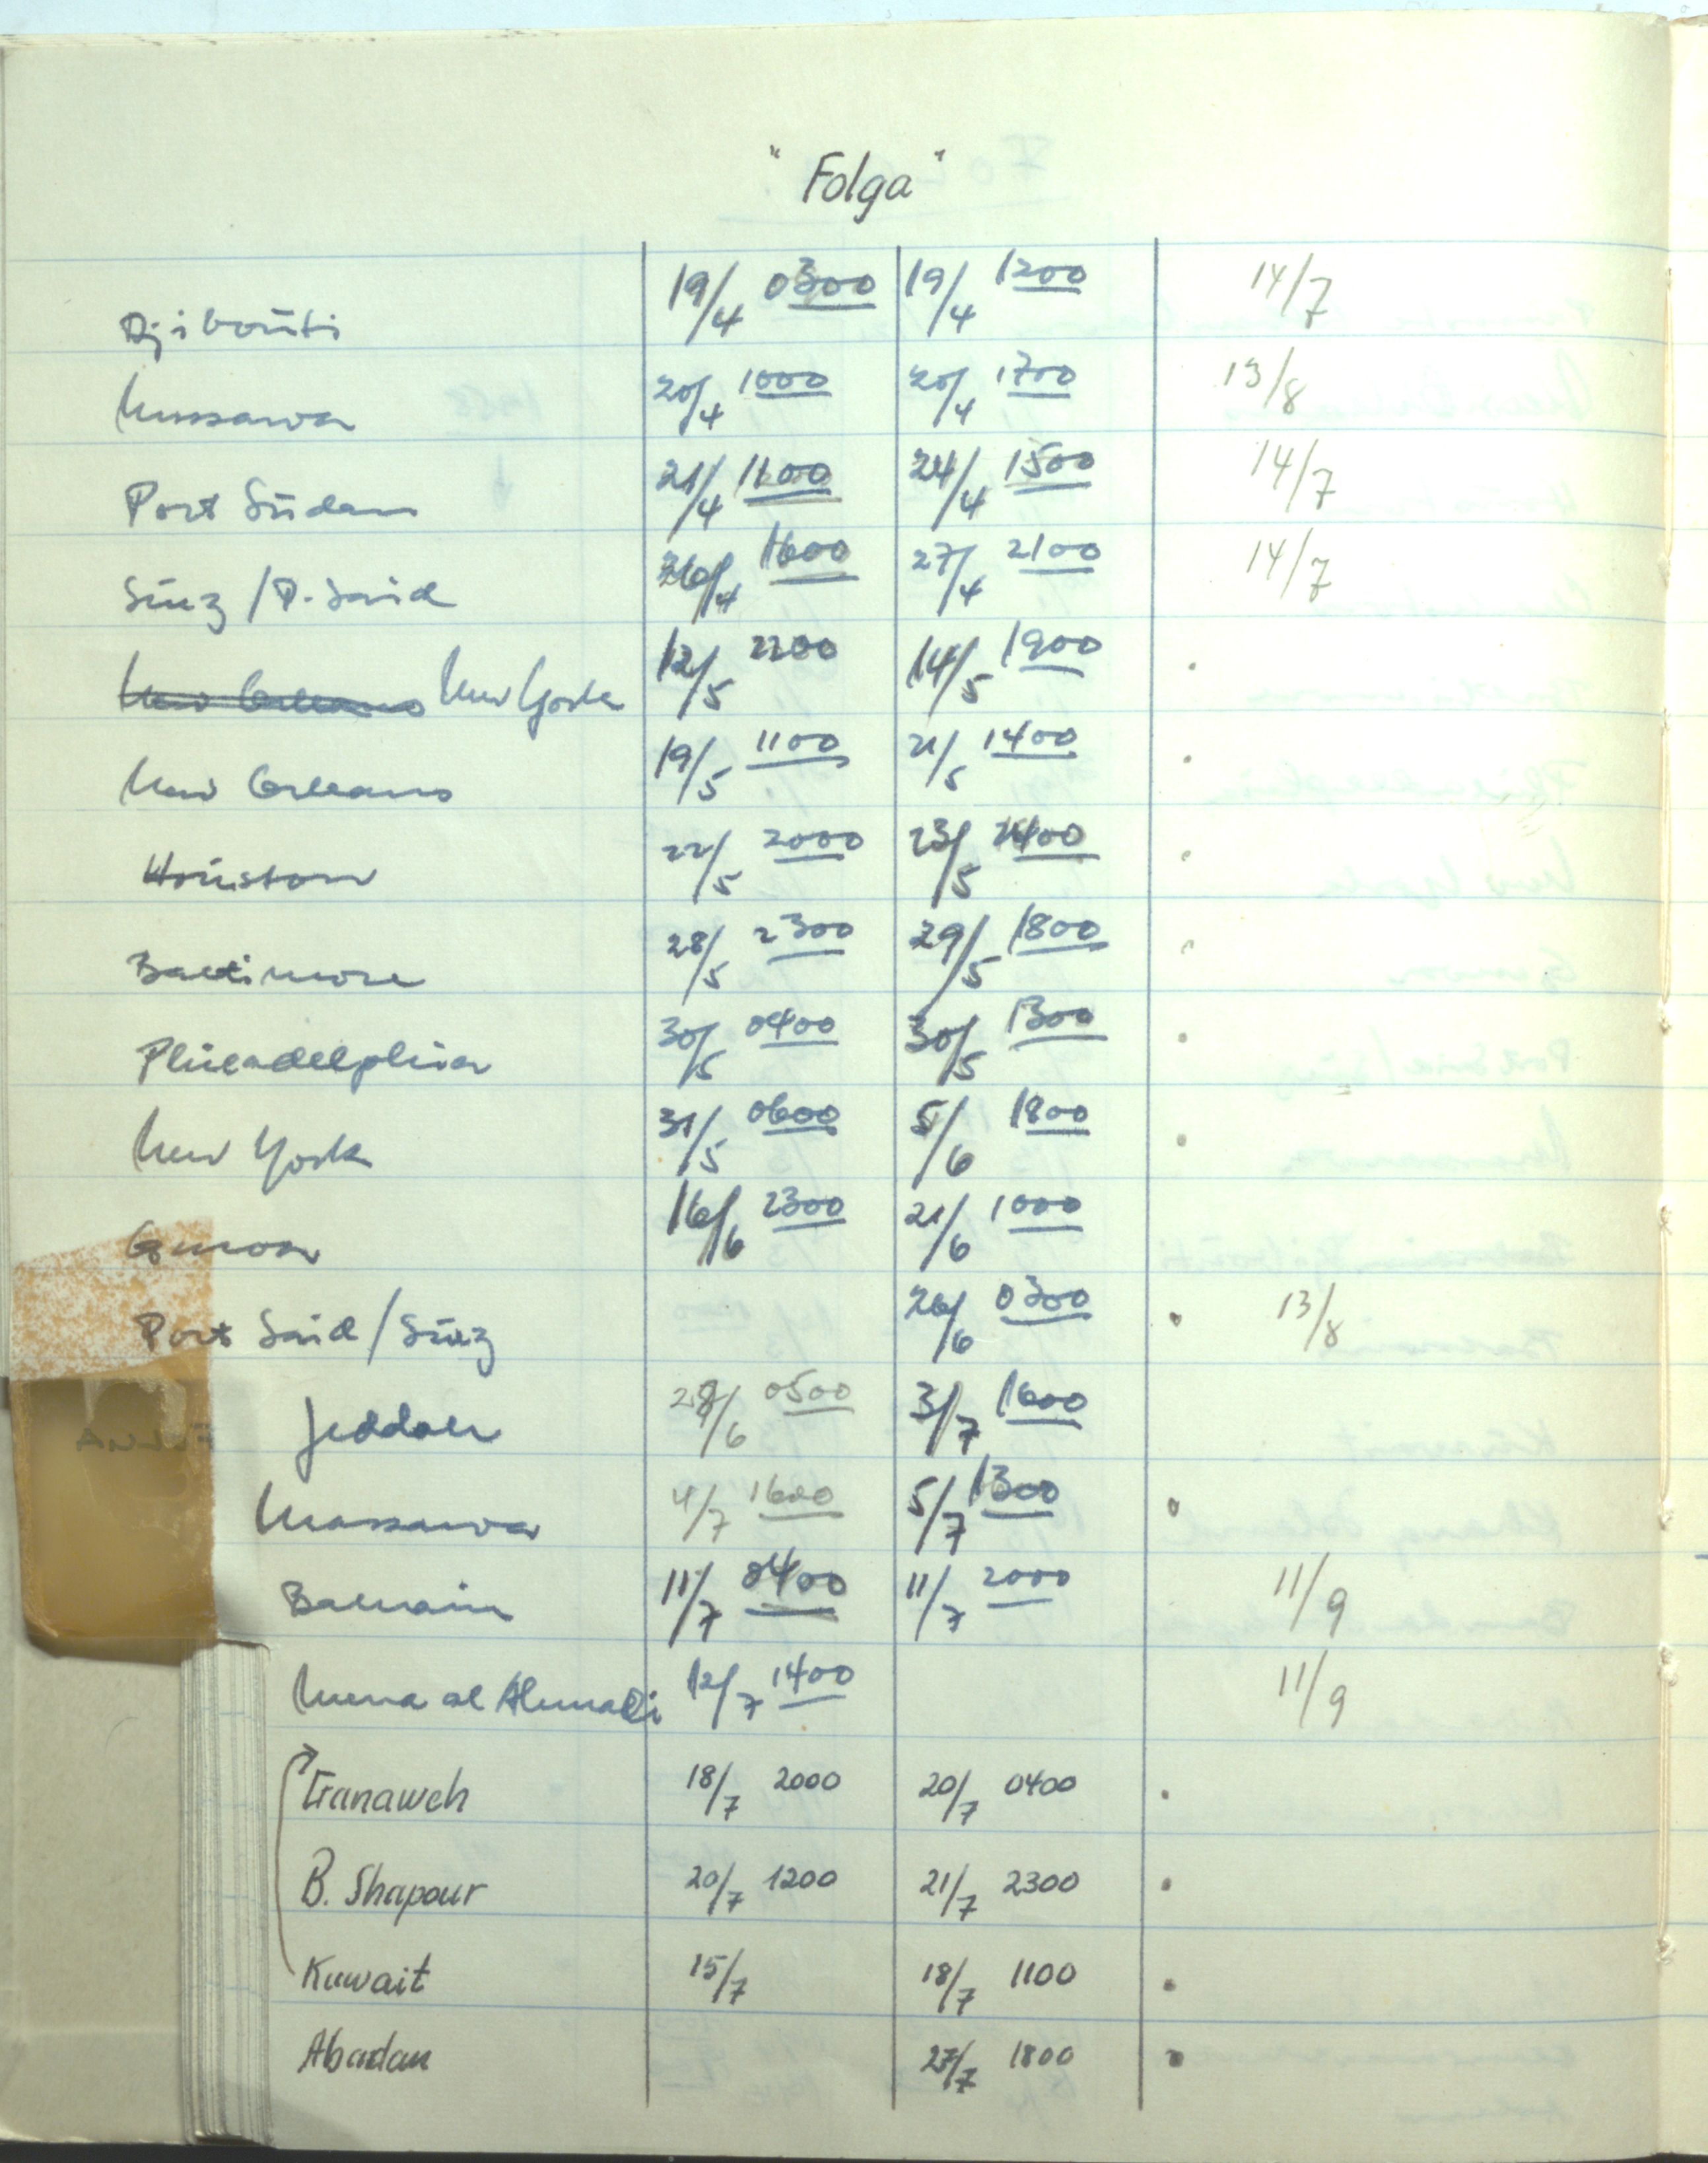 "Folga"
Djibouti 19/4 0300 19/4 1200 14/7
Massawa 20/4 1000 20/4 1700 13/8
Port Sudan 21/4 1100 24/4 1500 14/7
Suez / P. Said 26/4 1600 27/4 2100 14/7
New Orleans New York 12/5 2200 14/5 1900
New Orleans 19/5 1100 21/5 1400
Houston 22/5 2000 23/5 2400
Baltimore 28/5 2300 29/5 1800
Philadelphia 30/5 0400 30/5 1300
New York 31/5 0600 5/6 1800
Genoa 16/6 2300 21/6 1000
Port Said / Suez 26/6 0300 13/8
Jeddah 28/6 0500 3/7 1600
Massawa 4/7 1600 5/7 1300
Bahrain 11/7 0400 11/7 2000 11/9
Mena al Ahmadi 12/7 1400 11/9
Ganaweh 18/7 2000 20/7 0400
B. Shapour 20/7 1200 21/7 2300
Kuwait 15/7 18/7 1100
Abadan 27/7 1800